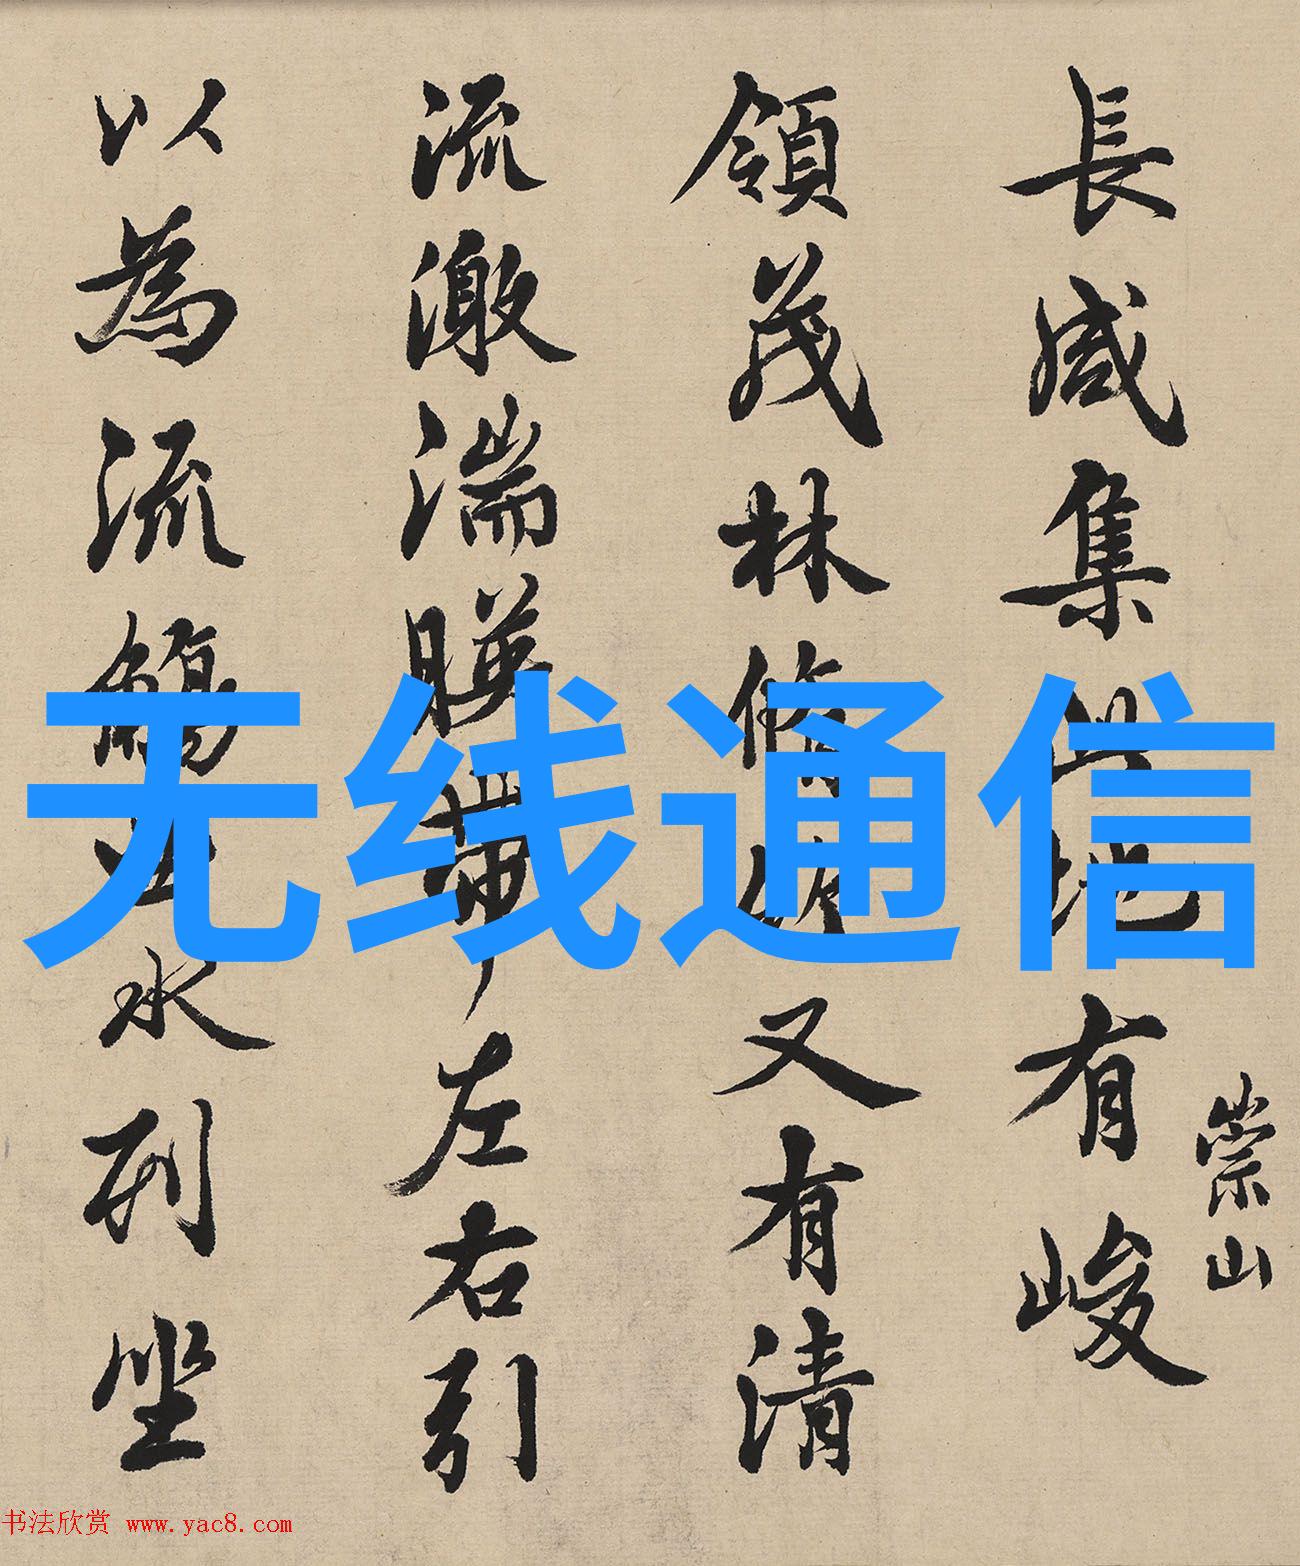 崇山
長咸集此地有峻
領茂林修竹又有清
流激湍暎帶左右引
以為流觴曲水列坐
无线通信
书法欣赏 www.yac8.com